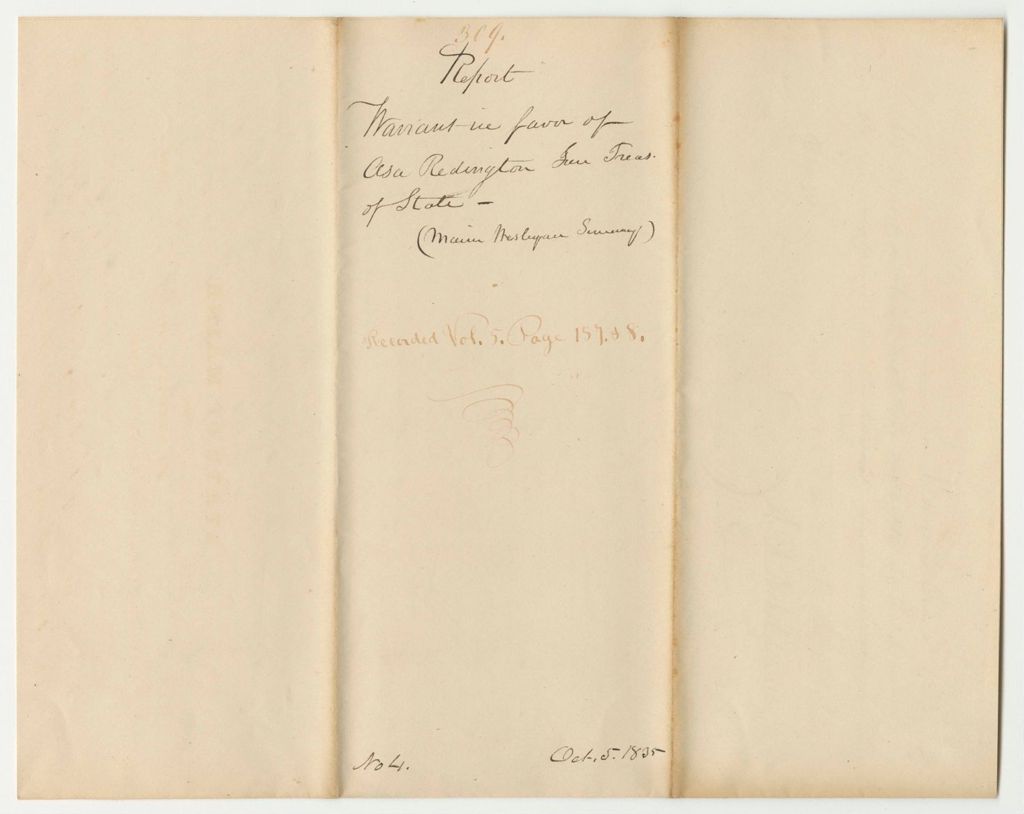 309.
Report
Warrant in favor of
Asa Redington Jun Treas.
of State –
(Maine Wesleyan Seminary)
Recorded Vol. 5. Page 157. & 8.
No 4.
Oct. 5. 1835